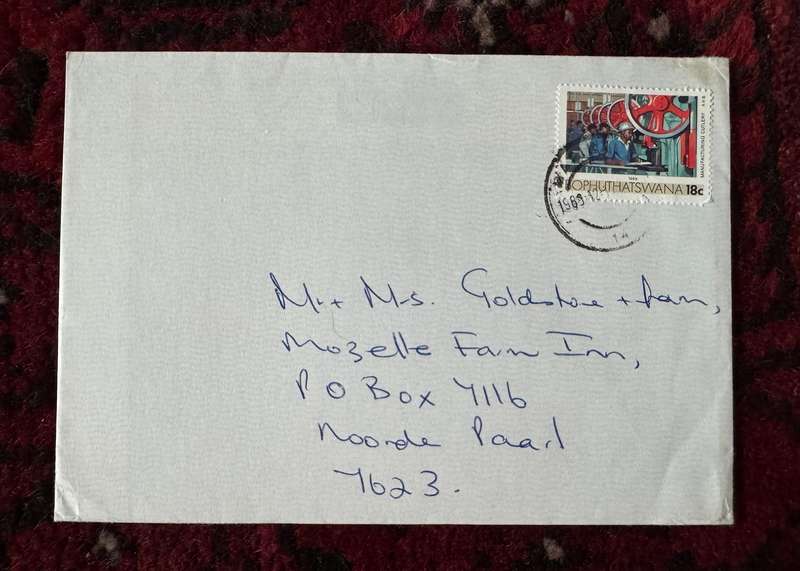 MANUFACTURING CUTLERY
OPHUTHATSWANA 18c
1989
Mr + Mrs. Goldstone + fam,
Mozelle Farm Inn,
P O Box 7116
Noorde Paarl
7623.